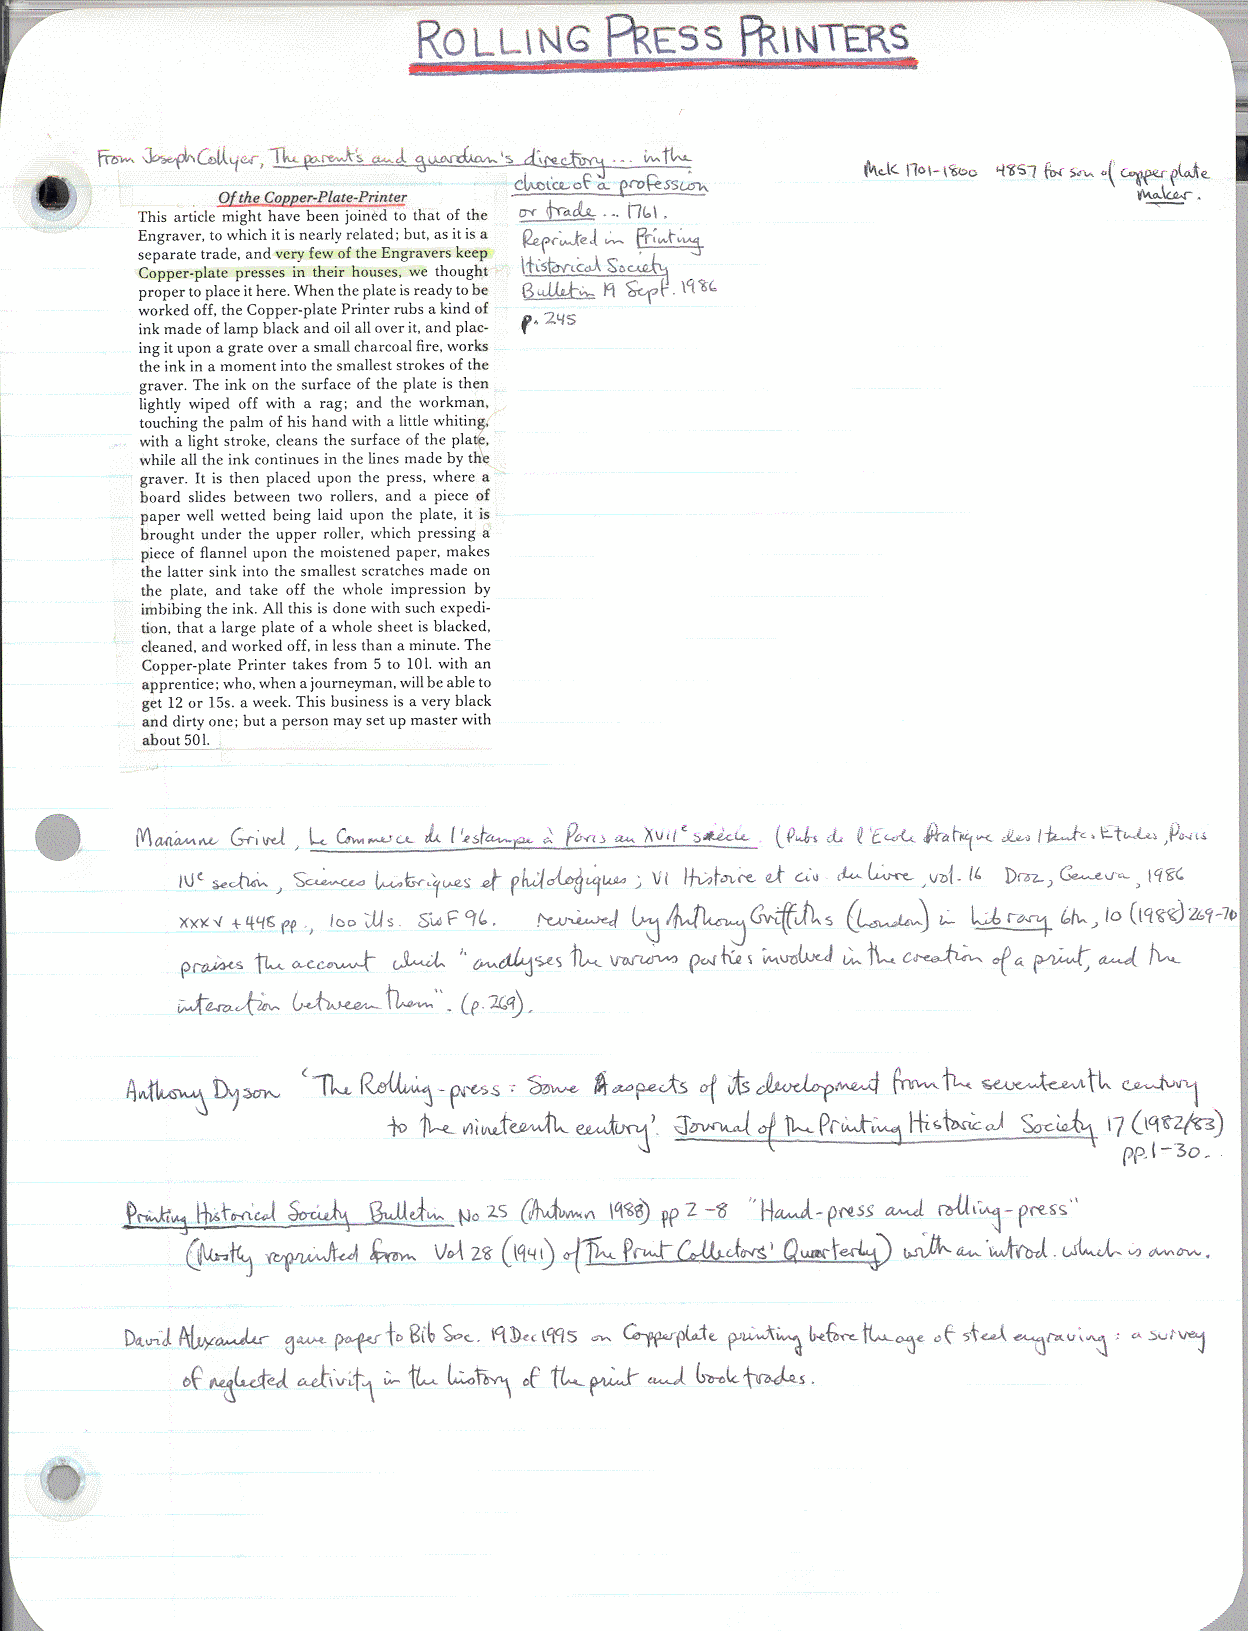 ROLLING PRESS PRINTERS
From Joseph Collyer, The parent's and guardian's directory... in the
choice of a profession
or trade... 1761.
Reprinted in Printing
Historical Society
Bulletin 19 Sept. 1986
p. 245
McK 1701-1800 4857 for son of copper plate
maker.
Of the Copper-Plate-Printer
This article might have been joined to that of the
Engraver, to which it is nearly related; but, as it is a
separate trade, and very few of the Engravers keep
Copper-plate presses in their houses, we thought
proper to place it here. When the plate is ready to be
worked off, the Copper-plate Printer rubs a kind of
ink made of lamp black and oil all over it, and plac-
ing it upon a grate over a small charcoal fire, works
the ink in a moment into the smallest strokes of the
graver. The ink on the surface of the plate is then
lightly wiped off with a rag; and the workman,
touching the palm of his hand with a little whiting,
with a light stroke, cleans the surface of the plate,
while all the ink continues in the lines made by the
graver. It is then placed upon the press, where a
board slides between two rollers, and a piece of
paper well wetted being laid upon the plate, it is
brought under the upper roller, which pressing a
piece of flannel upon the moistened paper, makes
the latter sink into the smallest scratches made on
the plate, and take off the whole impression by
imbibing the ink. All this is done with such expedi-
tion, that a large plate of a whole sheet is blacked,
cleaned, and worked off, in less than a minute. The
Copper-plate Printer takes from 5 to 10l. with an
apprentice; who, when a journeyman, will be able to
get 12 or 15s. a week. This business is a very black
and dirty one; but a person may set up master with
about 50l.
Marianne Grivel, Le Commerce de l'estampe à Paris au XVIIe siècle. (Pubs de l'Ecole Pratique des Hautes Etudes, Paris
IVe section, Sciences historiques et philologiques; VI Histoire et civ. du livre, vol. 16 Droz, Geneva, 1986
xxxv + 448 pp., 100 ills. SwF 96. reviewed by Anthony Griffiths (London) in Library 6th, 10 (1988) 269-70
praises the account which "analyses the various parties involved in the creation of a print, and the
interaction between them". (p. 269).
Anthony Dyson 'The Rolling-press: Some aspects of its development from the seventeenth century
to the nineteenth century'. Journal of the Printing Historical Society 17 (1982/83)
pp. 1-30.
Printing Historical Society Bulletin No 25 (Autumn 1988) pp 2-8 "Hand-press and rolling-press"
(Mostly reprinted from Vol 28 (1941) of The Print Collectors' Quarterly) with an introd. which is anon.
David Alexander gave paper to Bib Soc. 19 Dec 1995 on Copperplate printing before the age of steel engraving: a survey
of neglected activity in the history of the print and book trades.